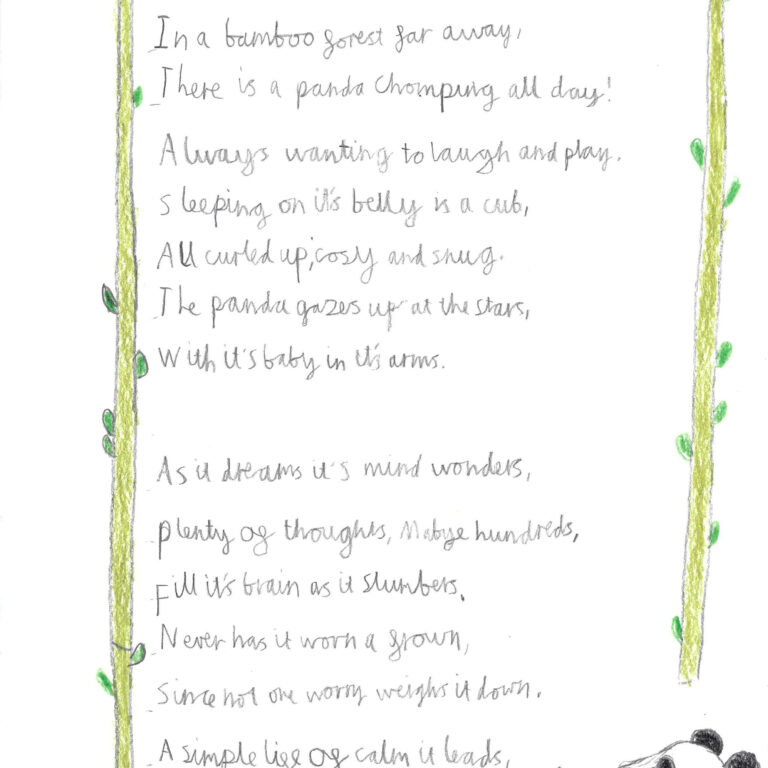 In a bamboo forest far away,
There is a panda Chomping all day!
Always wanting to laugh and play.
Sleeping on it's belly is a cub,
All curled up, cosy and snug.
The panda gazes up at the stars,
With it's baby in it's arms.
As it dreams it's mind wonders,
Plenty of thoughts, Mabye hundreds,
Fill it's brain as it slumbers.
Never has it worn a frown,
Since not one worry weighs it down.
A simple life of calm it leads,